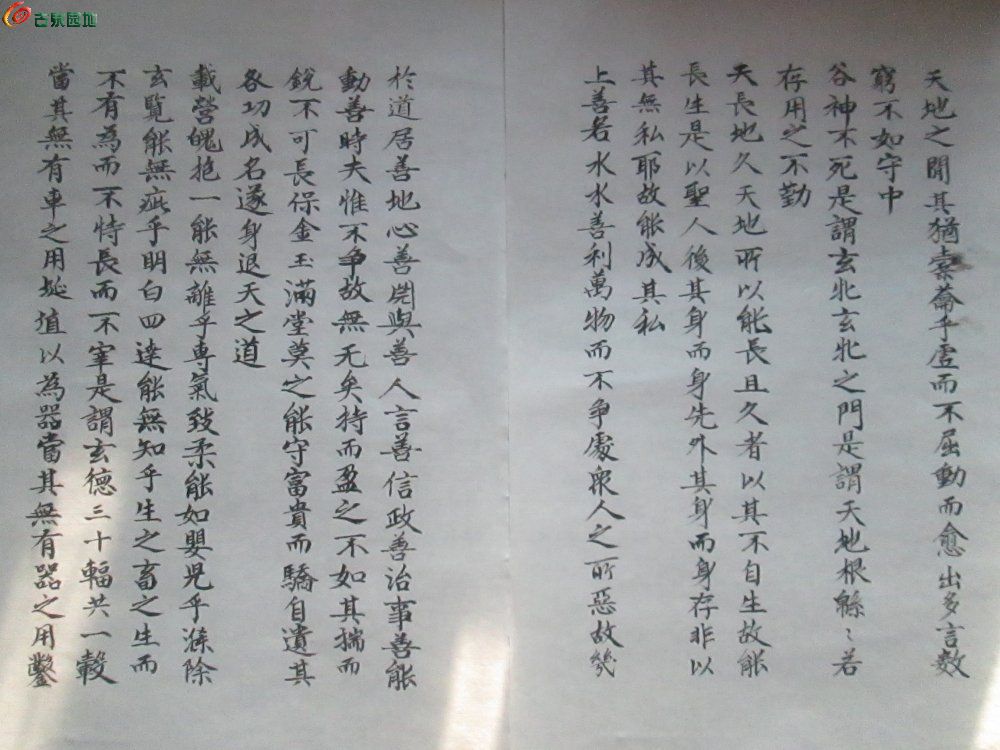 古泉园地
天地之間其猶橐籥乎虛而不屈動而愈出多言數
窮不如守中
谷神不死是謂玄牝玄牝之門是謂天地根緜〻若
存用之不勤
天長地久天地所以能長且久者以其不自生故能
長生是以聖人後其身而身先外其身而身存非以
其無私耶故能成其私
上善若水水善利萬物而不争處眾人之所惡故幾
於道居善地心善淵與善人言善信政善治事善能
動善時夫惟不争故無尤矣持而盈之不如其揣而
銳不可長保金玉滿堂莫之能守富貴而驕自遺其
咎功成名遂身退天之道
載營魄抱一能無離乎專氣致柔能如嬰兒乎滌除
玄覽能無疵乎明白四達能無知乎生之畜之生而
不有為而不恃長而不宰是謂玄德三十輻共一轂
當其無有車之用埏埴以為器當其無有器之用鑿